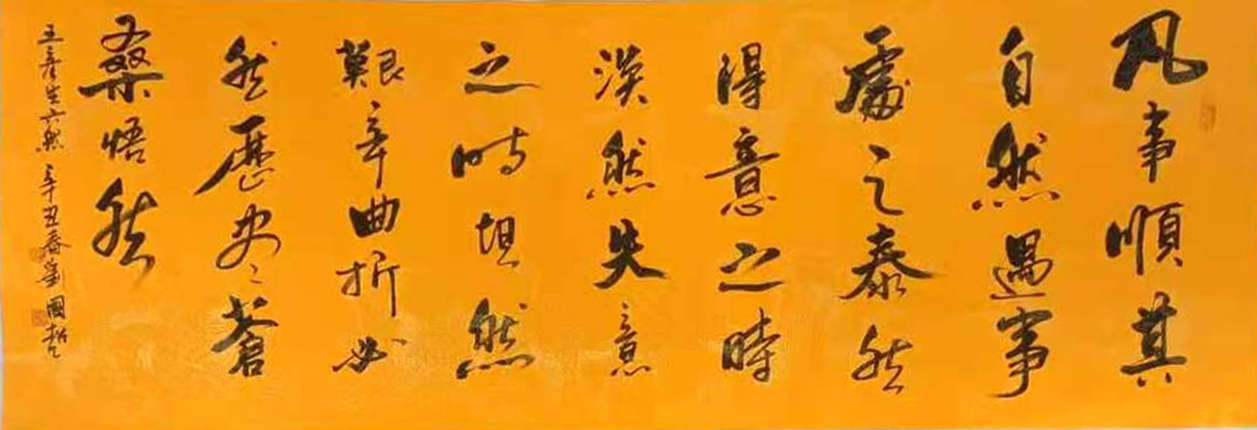 凡事順其
自然遇事
處之泰然
得意之時
淡然失意
之时坦然
艱辛曲折必
然歷尽蒼
桑悟然
王彦生六然 辛丑春劉國哲